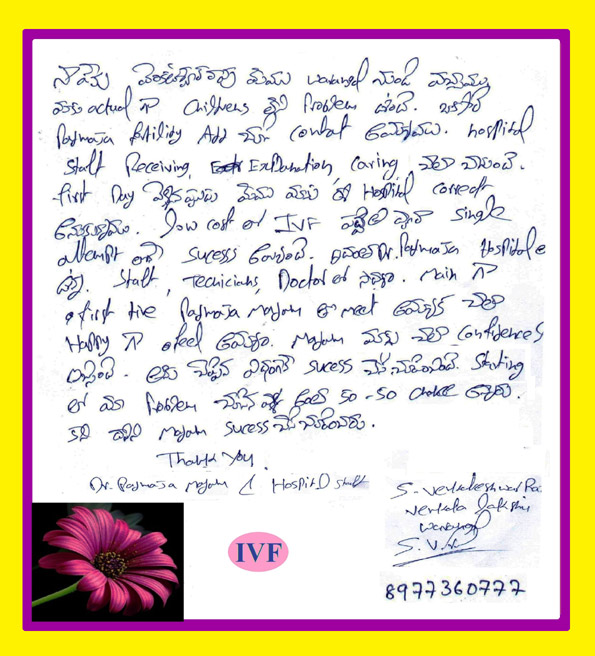 నా పేరు వెంకటేశ్వరరావు మేము warangal నుండి వచ్చాము
మాకు actual గా Childrens లేని Problem ఉంది.
Padmaja fertility Add చూసి contact అయ్యాము. hospital
Staff Receiving, Explanation, Caring చాలా బాగుంది.
first Day వెళ్ళినప్పుడు మేము మాకు ఈ Hospital correct
అనుకున్నాము. low cost లో IVF పద్ధతి ద్వారా single
attempt లో sucess అయ్యింది. Dr. Padmaja Hospital
Staff, Tecnicians, Doctor Main గా
first time Padmaja Madam ని meet అయ్యాక చాలా
Happy గా feel అయ్యాము. Madam మాకు చాలా Confidences
ఇచ్చింది. ఆమె చెప్పిన విధంగానే sucess చేసి చూపించింది. Starting
లో మా Problem 50-50 chance అన్నారు.
కానీ Madam sucess చేసి చూపించారు.
Thank you.
Dr. Padmaja Madam & Hospital staff
S. Venkateshwar Ra
Venkata Lakshmi
Warangal
S.V.R
8977360777
IVF